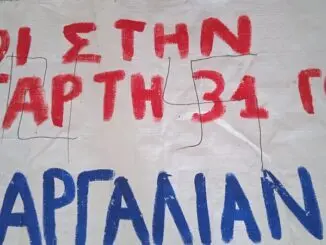 ΟΙ ΣΤΗΝ
ΤΑΡΤΗ 31 Γ
ΑΡΓΑΛΙΑΝ